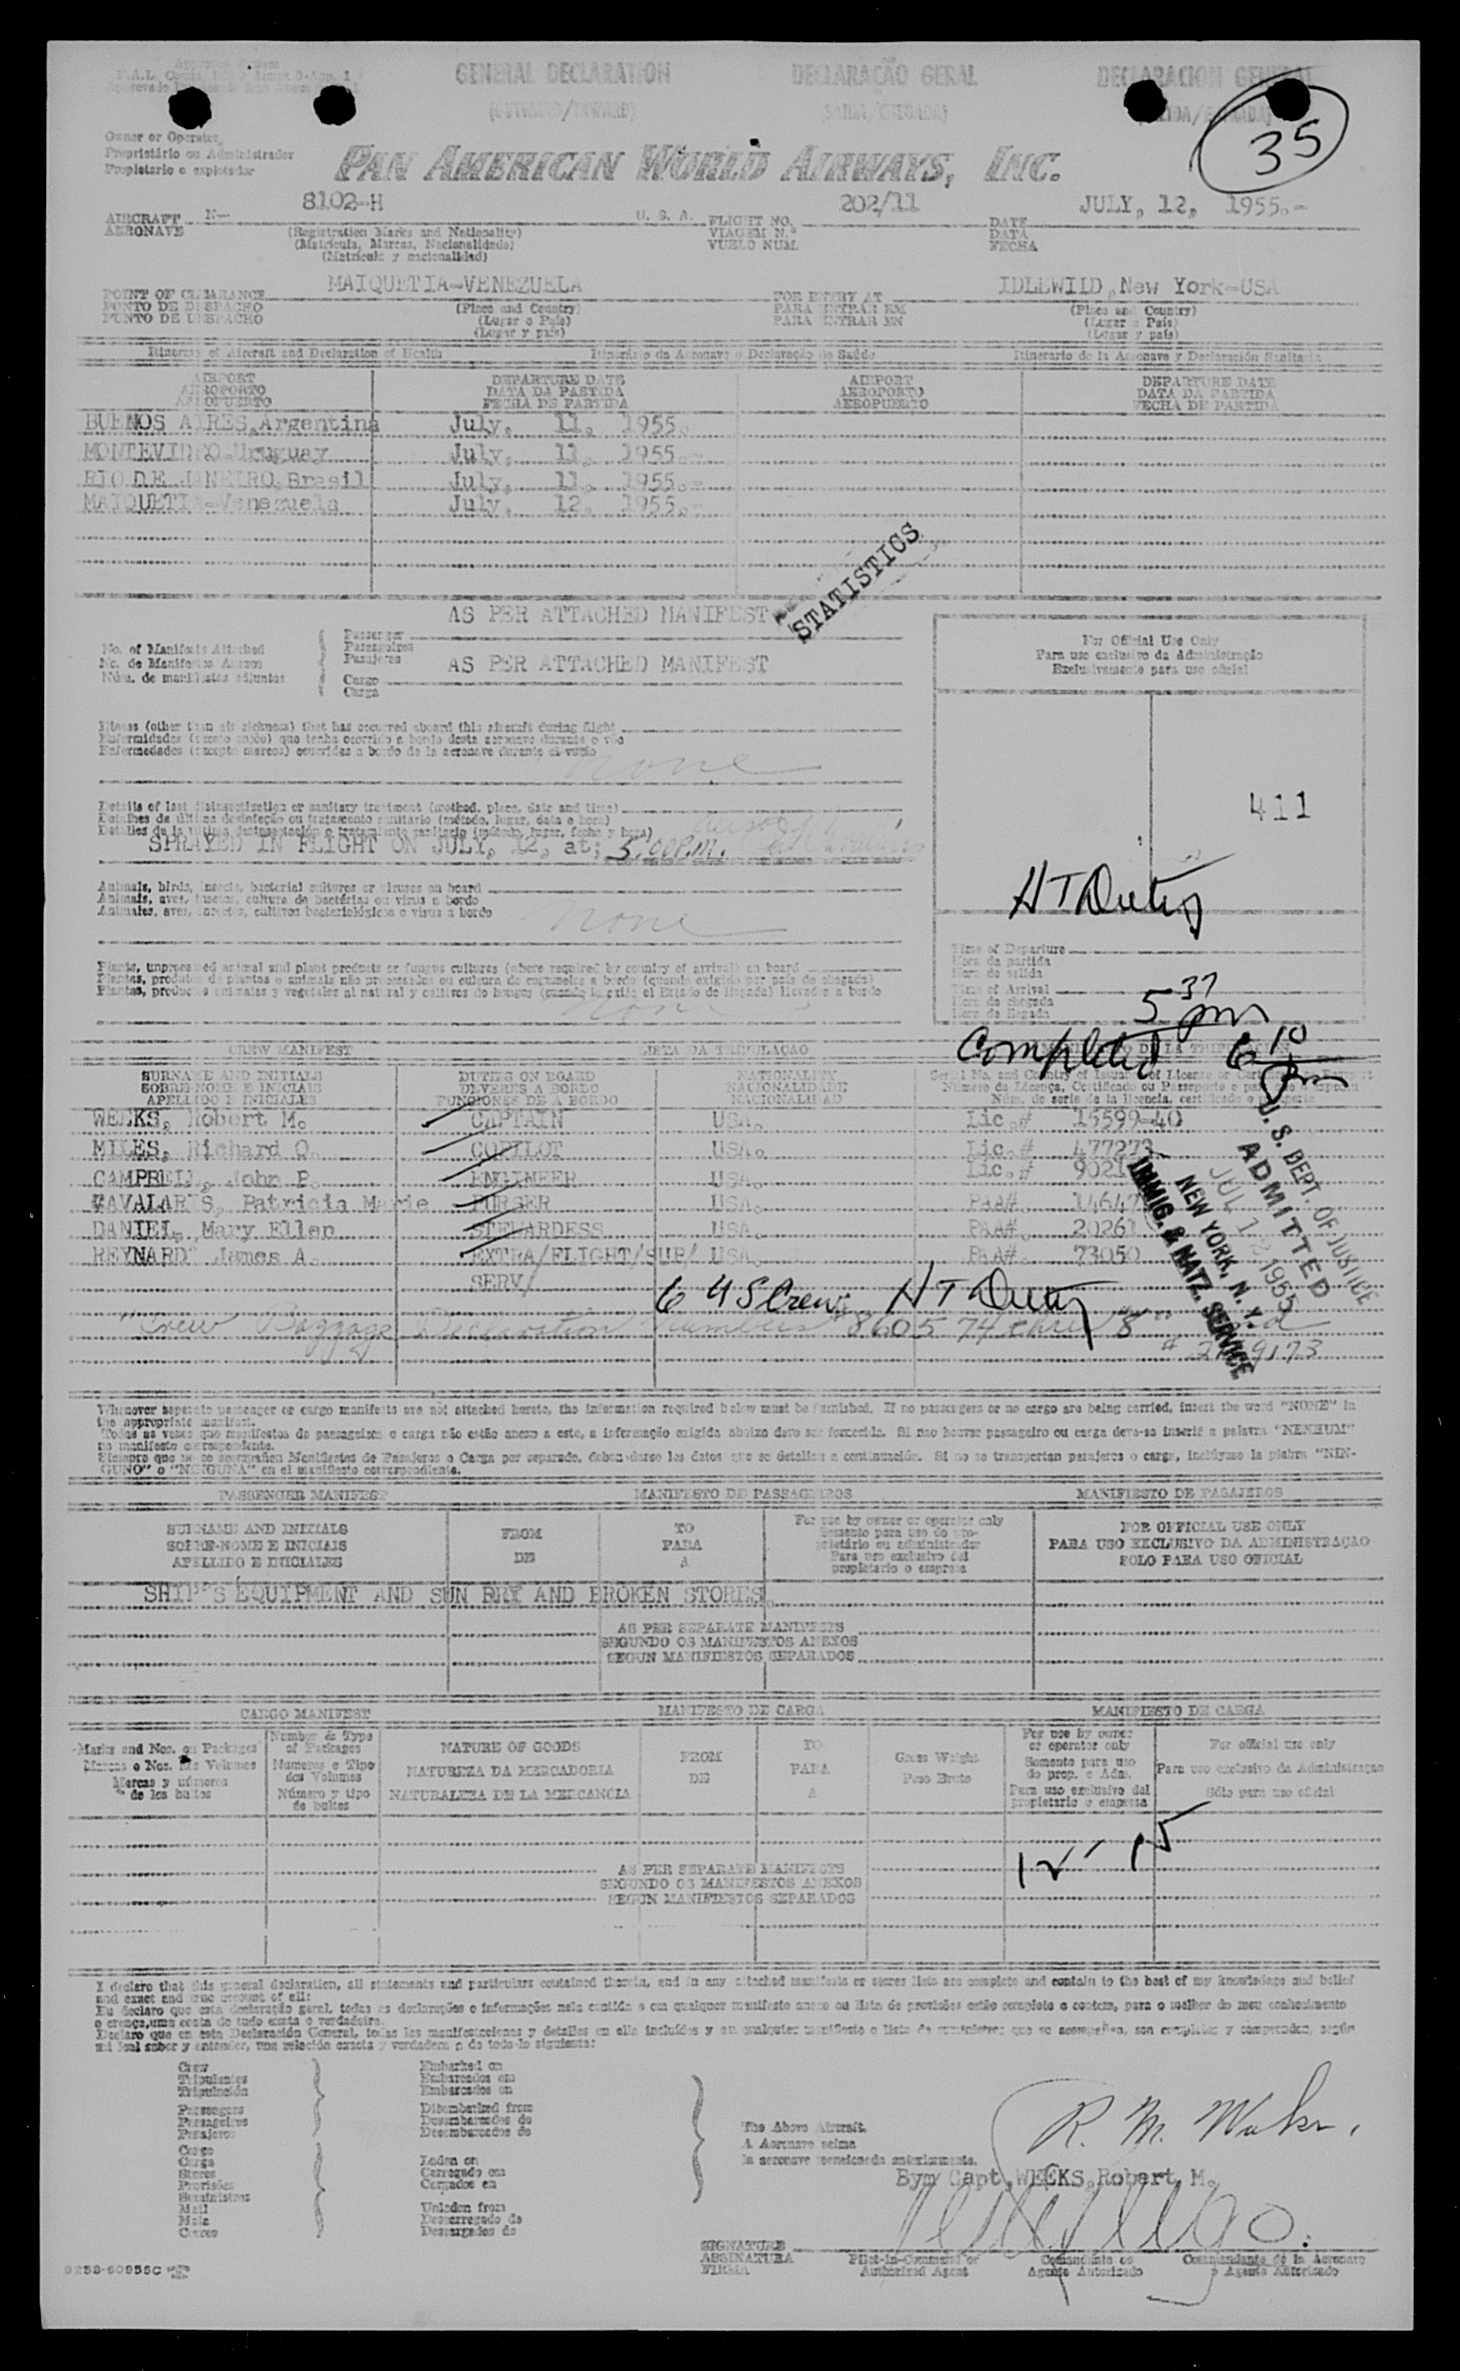 GENERAL DECLARATION DECLARAÇÃO GERAL DECLARACION GENERAL
(OUTWARD/INWARD)
35
Owner or Operator
Proprietário ou Administrador
Propietario o explotador
PAN AMERICAN WORLD AIRWAYS, INC.
AIRCRAFT N- 8102-H U. S. A. FLIGHT NO. 202/11 DATE JULY, 12, 1955.-
AERONAVE (Registration Marks and Nationality) VIAGEM N.º DATA
(Matrícula, Marcas, Nacionalidade) VUELO NUM. FECHA
(Matrícula y nacionalidad)
POINT OF CLEARANCE MAIQUETIA-VENEZUELA FOR ENTRY AT IDLEWILD, New York-USA
PONTO DE DESPACHO (Place and Country) PARA ENTRAR EM (Place and Country)
PUNTO DE DESPACHO (Lugar o País) PARA ENTRAR EN (Lugar o País)
(Lugar y país) (Lugar y país)
Itinerary of Aircraft and Declaration of Health Itinerário da Aeronave e Declaração de Saúde Itinerario de la Aeronave y Declaración Sanitaria
AIRPORT DEPARTURE DATE AIRPORT DEPARTURE DATE
AEROPORTO DATA DA PARTIDA AEROPORTO DATA DA PARTIDA
AEROPUERTO FECHA DE PARTIDA AEROPUERTO FECHA DE PARTIDA
BUENOS AIRES, Argentina July, 11, 1955.
MONTEVIDEO Uruguay July, 11, 1955.-
RIO DE JANEIRO, Brasil July, 11, 1955.-
MAIQUETIA-Venezuela July, 12, 1955.-
STATISTICS
AS PER ATTACHED MANIFEST
No. of Manifests Attached Passenger
No. de Manifestos Anexos Passageiros
Núm. de manifiestos adjuntos Pasajeros
AS PER ATTACHED MANIFEST
Cargo
Carga
For Official Use Only
Para uso exclusivo da Administração
Exclusivamente para uso oficial
Illness (other than air sickness) that has occurred aboard this aircraft during flight
Enfermidades (exceto enjôo) que tenha ocorrido a bordo desta aeronave durante o vôo
Enfermedades (excepto mareos) ocurridas a bordo de la aeronave durante el vuelo
none
Details of last disinsectization or sanitary treatment (method, place, date and time)
Detalhes de última desinfeção ou tratamento sanitário (método, lugar, data e hora)
Detalles de la última desinsectación o tratamiento sanitario (método, lugar, fecha y hora)
SPRAYED IN FLIGHT ON JULY, 12, at; 5:00P.M.
411
HT Duty
Animals, birds, insects, bacterial cultures or viruses on board
Animais, aves, insetos, cultura de bactérias ou virus a bordo
Animales, aves, insectos, cultivos bacteriológicos o virus a bordo
none
Time of Departure
Hora da partida
Hora de salida
Time of Arrival
Hora de chegada
Hora de llegada
5 37 pm
Plants, unprocessed animal and plant products or fungus cultures (where required by country of arrival) on board
none
Completed 6 10 pm
CREW MANIFEST LISTA DA TRIPULAÇÃO
SURNAME AND INITIALS DUTIES ON BOARD NATIONALITY
SOBRE-NOME E INICIAIS DEVERES A BORDO NACIONALIDADE
APELLIDO E INICIALES FUNCIONES DE A BORDO NACIONALIDAD
WEEKS, Robert M. CAPTAIN USA. Lic.# 15599-40
MILES, Richard O. COPILOT USA. Lic.# 477273
CAMPBELL, John P. ENGINEER USA. Lic.#
CAVALARIS, Patricia Marie PURSER USA. PAA#.
DANIEL, Mary Ellen STEWARDESS USA. PAA#. 20261
REYNARD James A. EXTRA/FLIGHT/SUP/ USA. PAA#. 73050
SERV/
6 US Crew HT Duty
Crew Baggage Declaration numbers # 860574 thru
U. S. DEPT. OF JUSTICE
ADMITTED
JUL 12 1955
NEW YORK, N. Y.
IMMIG. & NATZ. SERVICE
Whenever separate passenger or cargo manifests are not attached hereto, the information required below must be furnished. If no passengers or no cargo are being carried, insert the word "NONE" in
the appropriate manifest.
Todas as vezes que manifestos de passageiros e carga não estão anexo a este, a informação exigida abaixo deve ser fornecida. Si não houver passageiro ou carga deva-se inserir a palavra "NENHUM"
no manifesto correspondente.
Siempre que no se acompañen Manifiestos de Pasajeros o Carga por separado, deben darse los datos que se detallan a continuación. Si no se transportan pasajeros o carga, inclúyase la plabra "NIN-
GUNO" o "NINGUNA" en el manifiesto correspondiente.
PASSENGER MANIFEST MANIFESTO DE PASSAGEIROS MANIFIESTO DE PASAJEROS
SURNAME AND INITIALS FROM TO For use by owner or operator only FOR OFFICIAL USE ONLY
SOBRE-NOME E INICIAIS DE PARA PARA USO EXCLUSIVO DA ADMINISTRAÇAO
APELLIDO E INICIALES A SOLO PARA USO OFICIAL
Para uso exclusivo del
propietario o empresa
SHIP'S EQUIPMENT AND SUN DRY AND BROKEN STORES.
AS PER SEPARATE MANIFESTS
SEGUNDO OS MANIFESTOS ANEXOS
SEGUN MANIFIESTOS SEPARADOS
CARGO MANIFEST MANIFESTO DE CARGA MANIFIESTO DE CARGA
Marks and Nos. on Packages Number & Type of Packages NATURE OF GOODS FROM TO Gross Weight For use by owner or operator only For official use only
Marcas e Nos. dos Volumes Numeros e Tipo dos Volumes NATUREZA DA MERCADORIA DE PARA Peso Bruto Somente para uso do prop. e Adm. Para uso exclusivo da Administraçao
Marcas y números de los bultos Número y tipo de bultos NATURALEZA DE LA MERCANCIA A Para uso exclusivo del propietario o empresa Sólo para uso oficial
AS PER SEPARATE MANIFESTS
SEGUNDO OS MANIFESTOS ANEXOS
SEGUN MANIFIESTOS SEPARADOS
I declare that this general declaration, all statements and particulars contained therein, and in any attached manifests or stores lists are complete and contain to the best of my knowledge and belief
and exact and true account of all:
Eu declaro que esta declaração geral, todas as declarações e informações nela contida e em qualquer manifesto anexo ou lista de provisões estão completo e contem, para o melhor do meu conhecimento
e crença, uma conta de tudo exata e verdadeira.
Declaro que en esta Declaración General, todas las manifestaciones y detalles en ella incluídos y en cualquier manifiesto o lista de suministros que se acompañen, son completas y comprenden, según
mi leal saber y entender, una relación exacta y verdadera de todo lo siguiente:
Crew
Tripulantes
Tripulación
Passengers
Passageiros
Pasajeros
Cargo
Carga
Stores
Provisões
Suministros
Mail
Mala
Correo
Embarked on
Embarcados em
Embarcados en
Disembarked from
Desembarcados de
Desembarcados de
Laden on
Carregado em
Cargados en
Unladen from
Descarregado de
Descargados de
The Above Aircraft.
A Aeronave acima
la aeronave mencionada anteriormente.
By; Capt, WEEKS, Robert, M.
SIGNATURE
ASSINATURA Pilot-in-Command or Comandante ou Comandante de la Aeronave
FIRMA Authorized Agent Agente Autorizado o Agente Autorizado